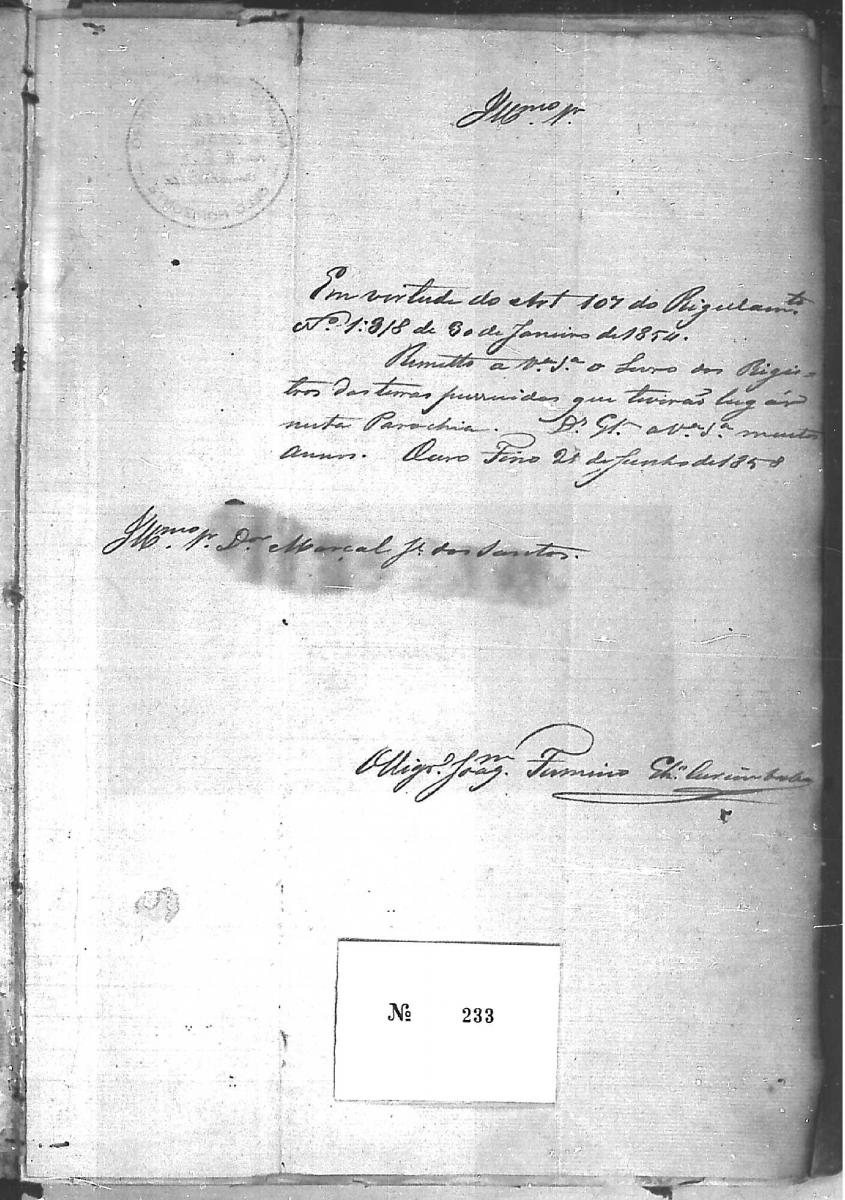 Illmo. Sr.
Em virtude do Art 107 do Regulamto.
No. 1:318 de 30 de Janeiro de 1854.
Remetto a Va. Sa. o Livro dos Regis-
tros das terras pussuidas que tiverão lugár
nesta Parochia. Ds. Ge. a Va. Sa. muitos
annos. Ouro Fino 21 de Junho de 1858
Illmo. Sr. Dor Marçal Je. dos Santos.
Joaqm. Firmino
No 233